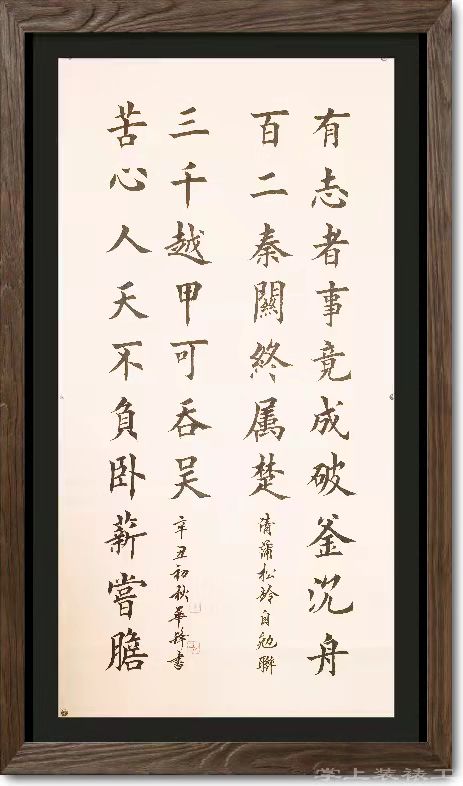 有志者事竟成破釜沉舟
百二秦關終属楚
清蒲松龄自勉聯
苦心人天不負卧薪嘗膽
三千越甲可吞吴
辛丑初秋華書
掌上装裱工